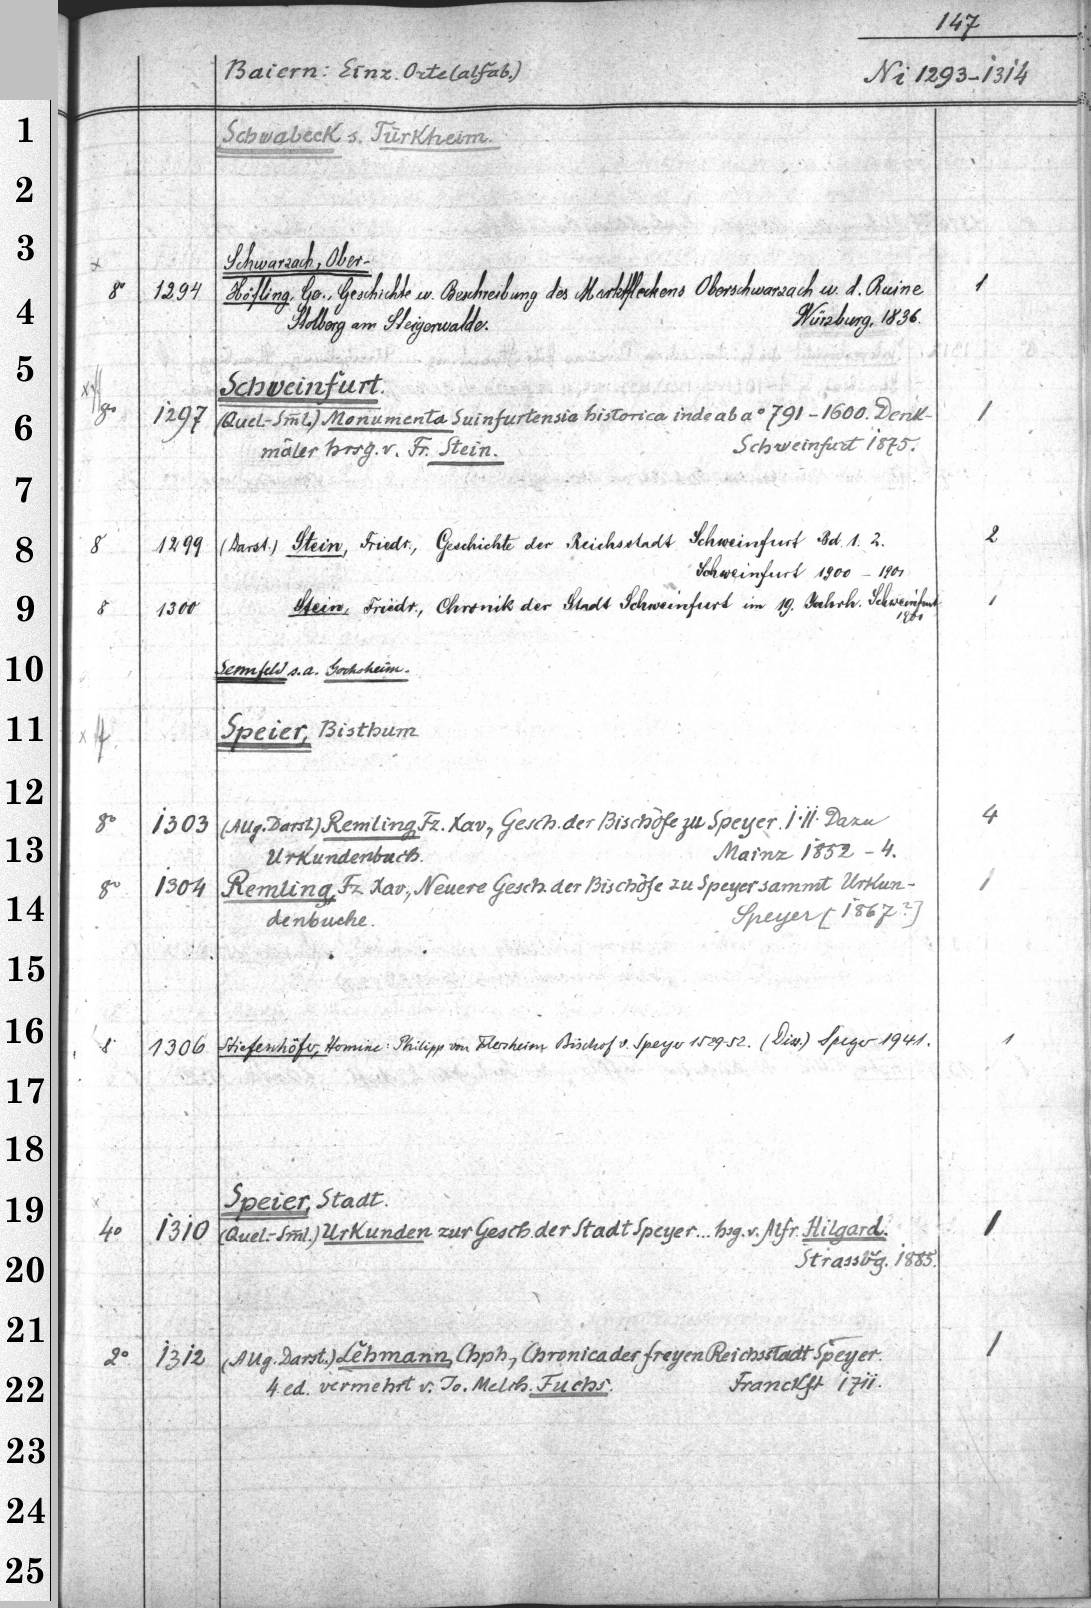 147
Baiern: Einz. Orte (alfab.) Ni 1293-1314
1 Schwabeck s. Türkheim.
2
3 Schwarzach, Ober-
8° 1294 Höfling, Ge., Geschichte u. Beschreibung des Marktfleckens Oberschwarzach u. d. Ruine 1
4 Stolberg am Steigerwalde. Würzburg, 1836.
5 Schweinfurt.
6 8° 1297 (Quel.-Sml.) Monumenta Suinfurtensia historica inde ab a° 791-1600. Denk- 1
mäler hrsg. v. Fr. Stein. Schweinfurt 1875.
7
8 8 1299 (Darst.) Stein, Friedr., Geschichte der Reichsstadt Schweinfurt Bd. 1. 2. 2
Schweinfurt 1900 - 1901
9 8 1300 Stein, Friedr., Chronik der Stadt Schweinfurt im 19. Jahrh. Schweinfurt 1
1901
10 Sennfeld s.a. Gochsheim.
11 Speier, Bisthum
12
8° 1303 (Allg. Darst.) Remling, Fz. Xav., Gesch. der Bischöfe zu Speyer. I.II. Dazu 4
13 Urkundenbuch. Mainz 1852 - 4.
8° 1304 Remling, Fz Xav., Neuere Gesch. der Bischöfe zu Speyer sammt Urkun- 1
14 denbuche. Speyer [1867?]
15
16 8° 1306 Stiefenhöfer, : Philipp von Flersheim Bischof v. Speyer 1529-52. (Diss.) Speyer 1941. 1
17
18
19 Speier, Stadt.
4° 1310 (Quel.-Sml.) Urkunden zur Gesch. der Stadt Speyer... hsg. v. Alfr. Hilgard. 1
20 Strassbg. 1885.
21
2° 1312 (Allg. Darst.) Lehmann, Chph., Chronica der freyen Reichsstadt Speyer. 1
22 4. ed. vermehrt v. Jo. Melch. Fuchs. Franckft 1711.
23
24
25